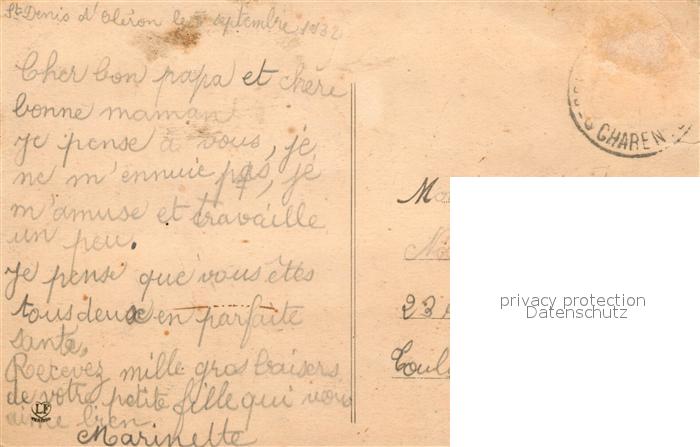 St Denis d'Oléron le septembre 1932
Cher bon papa et chère
bonne maman
je pense à vous, je
ne m'ennuie pas, je
m'amuse et travaille
un peu.
Je pense que vous êtes
tous deux en parfaite
santé,
Recevez mille gros baisers
de votre petite fille qui vous
aime bien
Marinette
CHAREN
Ma
No
23
Toul
privacy protection
Datenschutz